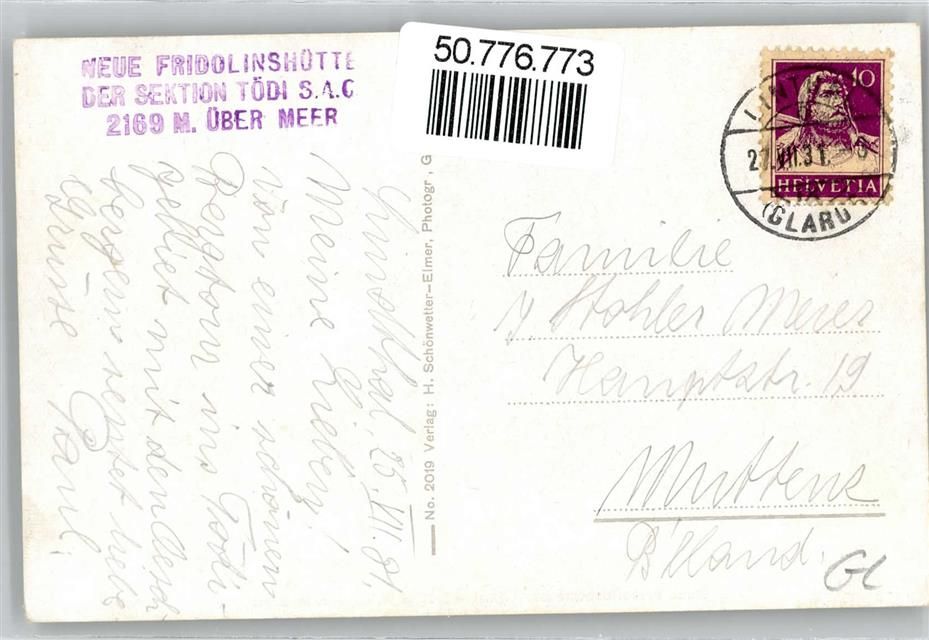 NEUE FRIDOLINSHÜTTE
DER SEKTION TÖDI S.A.C
2169 M. ÜBER MEER
50.776.773
10
27.VII.31.
HELVETIA
(GLARU
Linthal, 25.VII.31,
Meine Lieben!
Von einer schönen
Bergtour ins Tödi-
gebiet mit den
bergern sendet liebe
Grüsse Paul.
No. 2019 Verlag: H. Schönwetter-Elmer, Photogr., G
Familie
Stohler
Hauptstr. 19
Muttenz
B'land.
GL